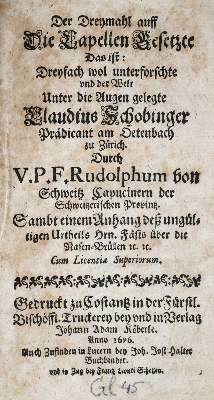 Der Dreymahl auff
Die Capellen Gesetzte
Das ist:
Dreyfach wol unterforschte
vnd der Welt
Unter die Augen gelegte
Claudius Schobinger
Prädicant am Oetenbach
zu Zürich.
Durch
V. P. F. Rudolphum von
Schweitz Capucinern der
Schweitzerischen Provintz.
Sambt einem Anhang deß ungül-
tigen Urtheils Hrn. Fäsis über die
Nasen-Brüllen ꝛc. ꝛc.
Cum Licentiâ Superiorum.
Gedruckt zu Costantz in der Fürstl.
Bischöffl. Truckerey bey vnd in Verlag
Johann Adam Köberle.
Anno 1696.
Auch Zufinden in Lucern bey Joh. Jost Halter
Buchbinder.
vnd in Zug bey Frantz Leonti Schäll
Gl 45